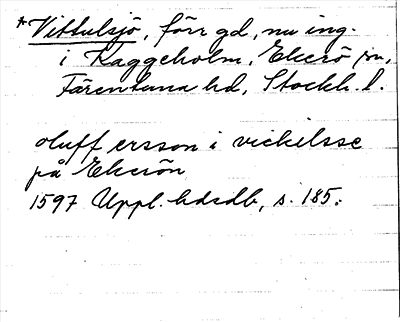 *Vittulsjö, förr gd, nu ing.
i Kaggeholm, Ekerö sn,
Färentuna hd, Stockh. l.
oluff ersson i vickilsse
på Ekerön
1597 Uppl. hdrdb, s. 185.